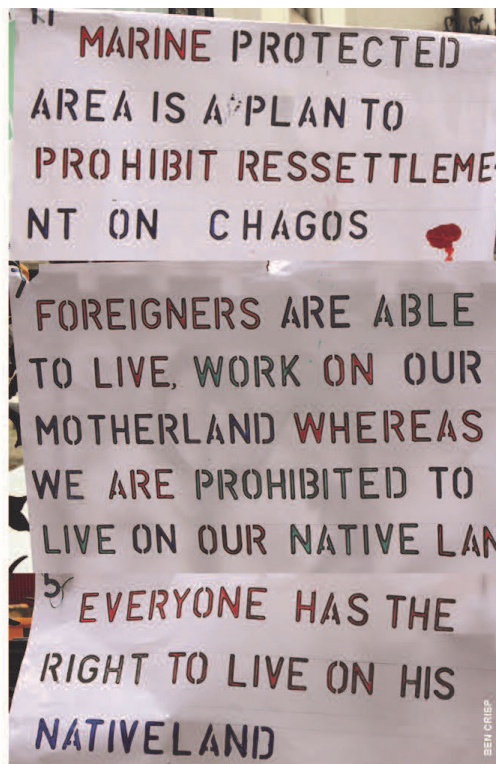 MARINE PROTECTED
AREA IS A PLAN TO
PROHIBIT RESSETTLEME
NT ON CHAGOS
FOREIGNERS ARE ABLE
TO LIVE, WORK ON OUR
MOTHERLAND WHEREAS
WE ARE PROHIBITED TO
LIVE ON OUR NATIVE LAN
5
EVERYONE HAS THE
RIGHT TO LIVE ON HIS
NATIVELAND
BEN CRISP